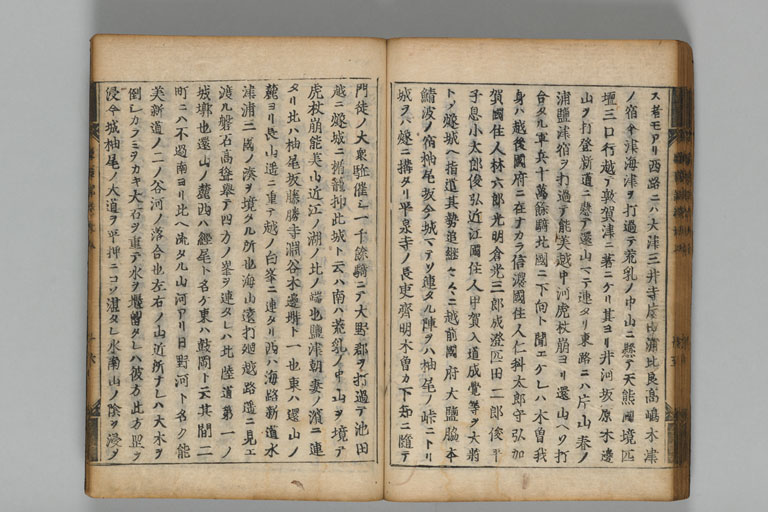 ス者モアリ西路ニハ大津三井寺片山浦比良高嶋木津
ノ宿今津海津ヲ打過テ荒乳ノ中山ニ懸テ天熊国境匹
壇三口行越テ敦賀津ニ著ニケリ其ヨリ井河坂原木邊
山ヲ打登新道ニ懸テ還山マテ連タリ東路ニハ片山春ノ
浦鹽津宿ヲ打過テ能美越中河虎杖崩ヨリ還山ヘソ打
合タル軍兵十萬餘騎北國ニ下向ト聞エケレハ木曽我
身ハ越後國府ニ在ナカラ信濃國住人仁科太郎守弘加
賀國住人林六郎光明倉光三郎成澄匹田二郎俊平
子息小太郎俊弘近江國住人甲賀入道成覺等ヲ大將
トノ燧城ヘ指遣其勢追繼 ニ越前國府大鹽脇本
鯖波ノ宿柚尾坂今城マテソ連タル陣ヲハ柚尾ノ峠ニトリ
城ヲハ燧ニ搆タリ平泉寺ノ長吏齊明木曽カ下知ニ隨テ
門徒ノ大衆駈催シ一千餘騎ニテ大野郡ヲ打過テ池田
越ニ燧城ニ楯籠抑此城ト云ハ南ハ荒乳ノ中山ヲ境テ
虎杖崩能美山近江ノ湖ノ北ノ端也鹽津朝妻ノ濱ニ連
タリ北ハ柚尾坂藤勝寺淵谷木邊峠ト一也東ハ還山ノ
麓ヨリ長山遥ニ重テ越ノ白峯ニ連タリ西ハ海路新道水
津浦三國ノ湊ヲ境タル所也海山遠打廻越路遥ニ見エ
渡ル磐石高聳擧テ四方ノ峯ヲ連タレハ北陸道第一ノ
城墎也還山ノ麓西ハ經尾ト名ケ東ハ鼓岡ト云其間二
町ニハ不過南ヨリ北ヘ流タル山河アリ日野河ト名ク能
美新道ノ二ノ谷河ノ落合也左右ノ山近所ナレハ大木ヲ
倒シカフミヲカキ大石ヲ重テ水ヲ 留タレハ彼方此方 テ
浸今城柚尾ノ大道ヲ平押ニコソ湛タレ水南山ノ陰ヲ浸ノ